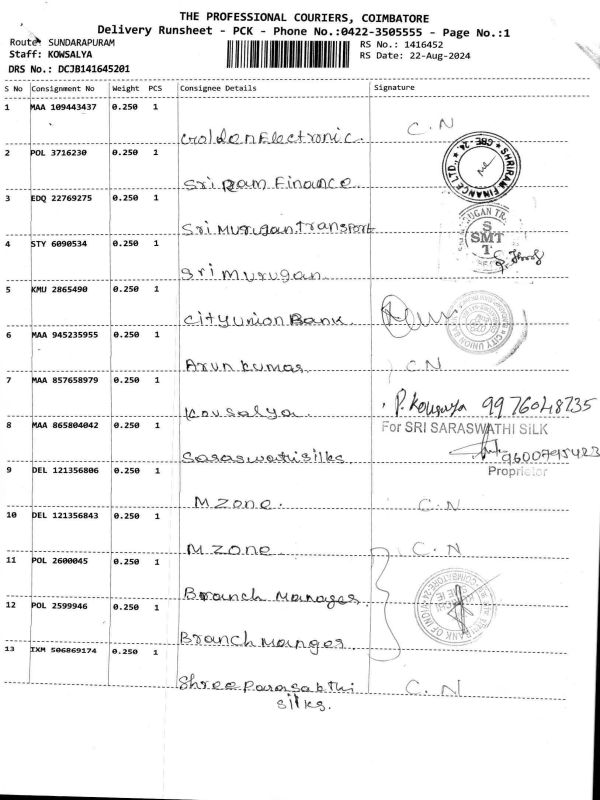 THE PROFESSIONAL COURIERS, COIMBATORE
Delivery Runsheet - PCK - Phone No.:0422-3505555 - Page No.:1
Route: SUNDARAPURAM
RS No.: 1416452
Staff: KOWSALYA
RS Date: 22-Aug-2024
DRS No.: DCJB141645201
S No Consignment No Weight PCS Consignee Details Signature
1 MAA 109443437 0.250 1
Golden Electronic. C.N
2 POL 3716230 0.250 1
SHRIRAM FINANCE LTD.,
Sri Ram Finance
3 EDQ 22769275 0.250 1
Sri Murugan Transport
SMT
4 STY 6090534 0.250 1
Sri Murugan
5 KMU 2865490 0.250 1
City Union Bank
CITY UNION BANK
6 MAA 945235955 0.250 1
Arun kumar C N
7 MAA 857658979 0.250 1
Kousalya P. Kousalya 9976048735
8 MAA 865804042 0.250 1
For SRI SARASWATHI SILK
Saraswathi silks 9600795423
Proprietor
9 DEL 121356806 0.250 1
M Zone. C. N
10 DEL 121356843 0.250 1
M Zone C. N
11 POL 2600045 0.250 1
Branch Manager
12 POL 2599946 0.250 1
Branch Manger
13 IXM 506869174 0.250 1
Shree Parasakthi C. N
silks.